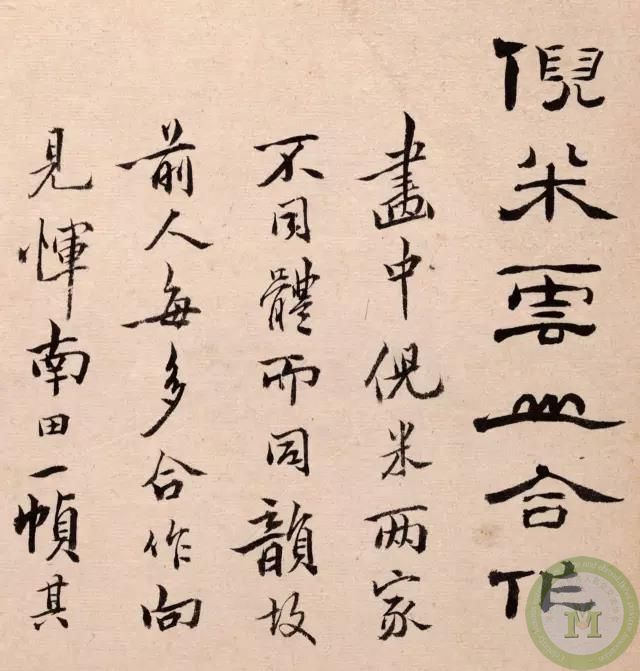 倪米雲山合作
畫中倪米两家
不同體而同韻故
前人每多合作向
見惲南田一幀其
M